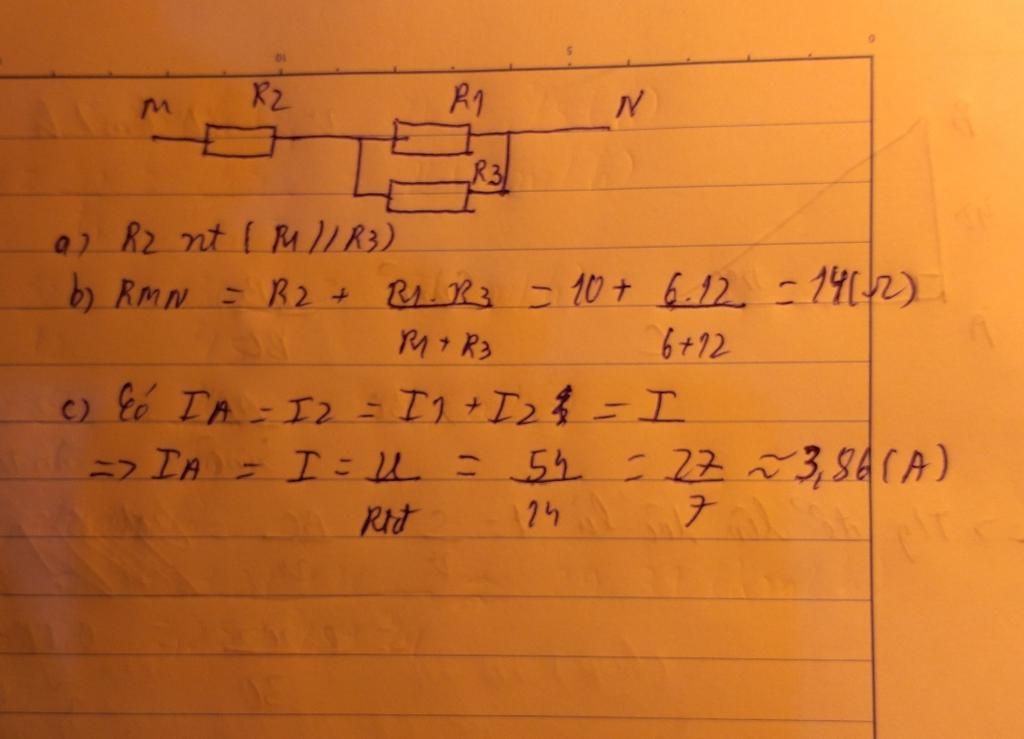 10 5 0
M R2 R1 N
R3
a) R2 nt (R1//R3)
b) RMN = R2 + R1.R3 / R1+R3 = 10 + 6.12 / 6+12 = 14(Ω)
c) Có IA = I2 = I1 + I2 = I
=> IA = I = U / Rtđ = 54 / 14 = 27 / 7 ≈ 3,86 (A)